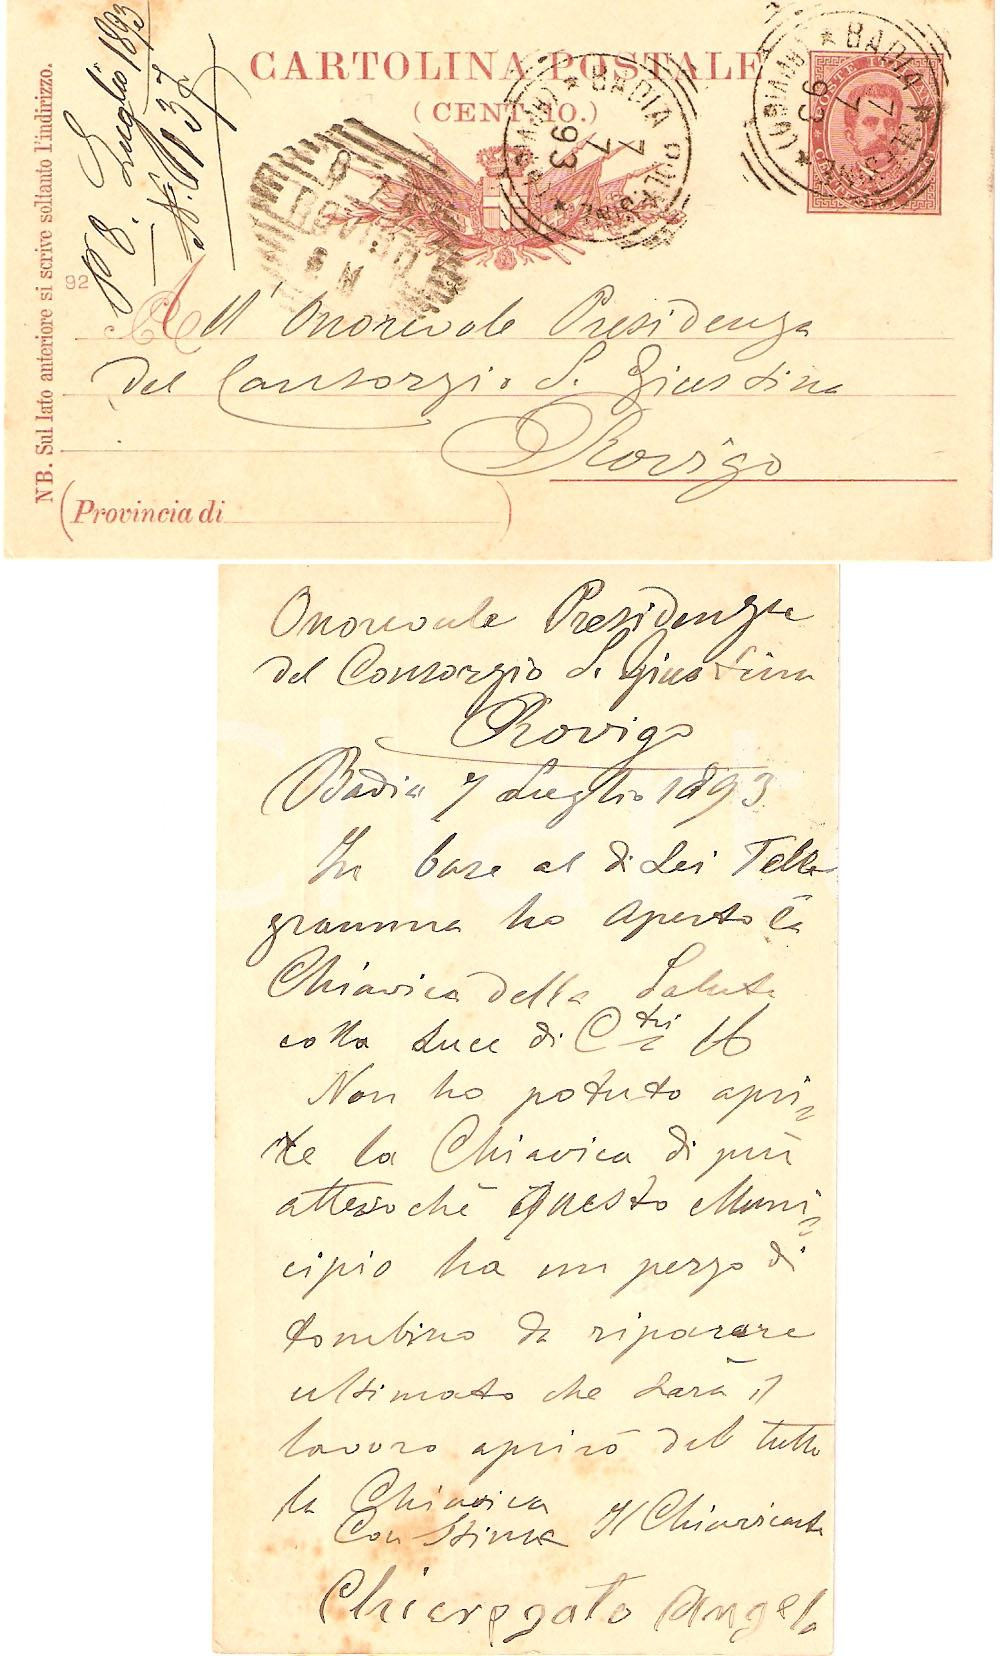 CARTOLINA POSTALE
(CENT. 10.)
NB. Sul lato anteriore si scrive soltanto l'indirizzo.
92
P 8. Luglio 1893
N. 137
BADIA POLESINE
(ROVIGO)
7
7
93
BADIA POLESINE
(ROVIGO)
7
7
93
POSTE ITALIANE
8
7
ROVIGO
8 M
All' Onorevole Presidenza
del Consorzio S. Giustina
Rovigo
(Provincia di )
Onorevole Presidenza
del Consorzio S. Giustina
Rovigo
Badia 7 Luglio 1893
In base al di Lei Tele
gramma ho aperto la
Chiavica della Salute
colla luce di C tri 16
Non ho potuto apri=
re la Chiavica di più
attesochè questo Muni=
cipio ha un pezzo di
tombino da riparare
ultimato che sarà il
lavoro aprirò del tutto
la Chiavica
Con Stima Il Chiavicante
Chieregato Angelo